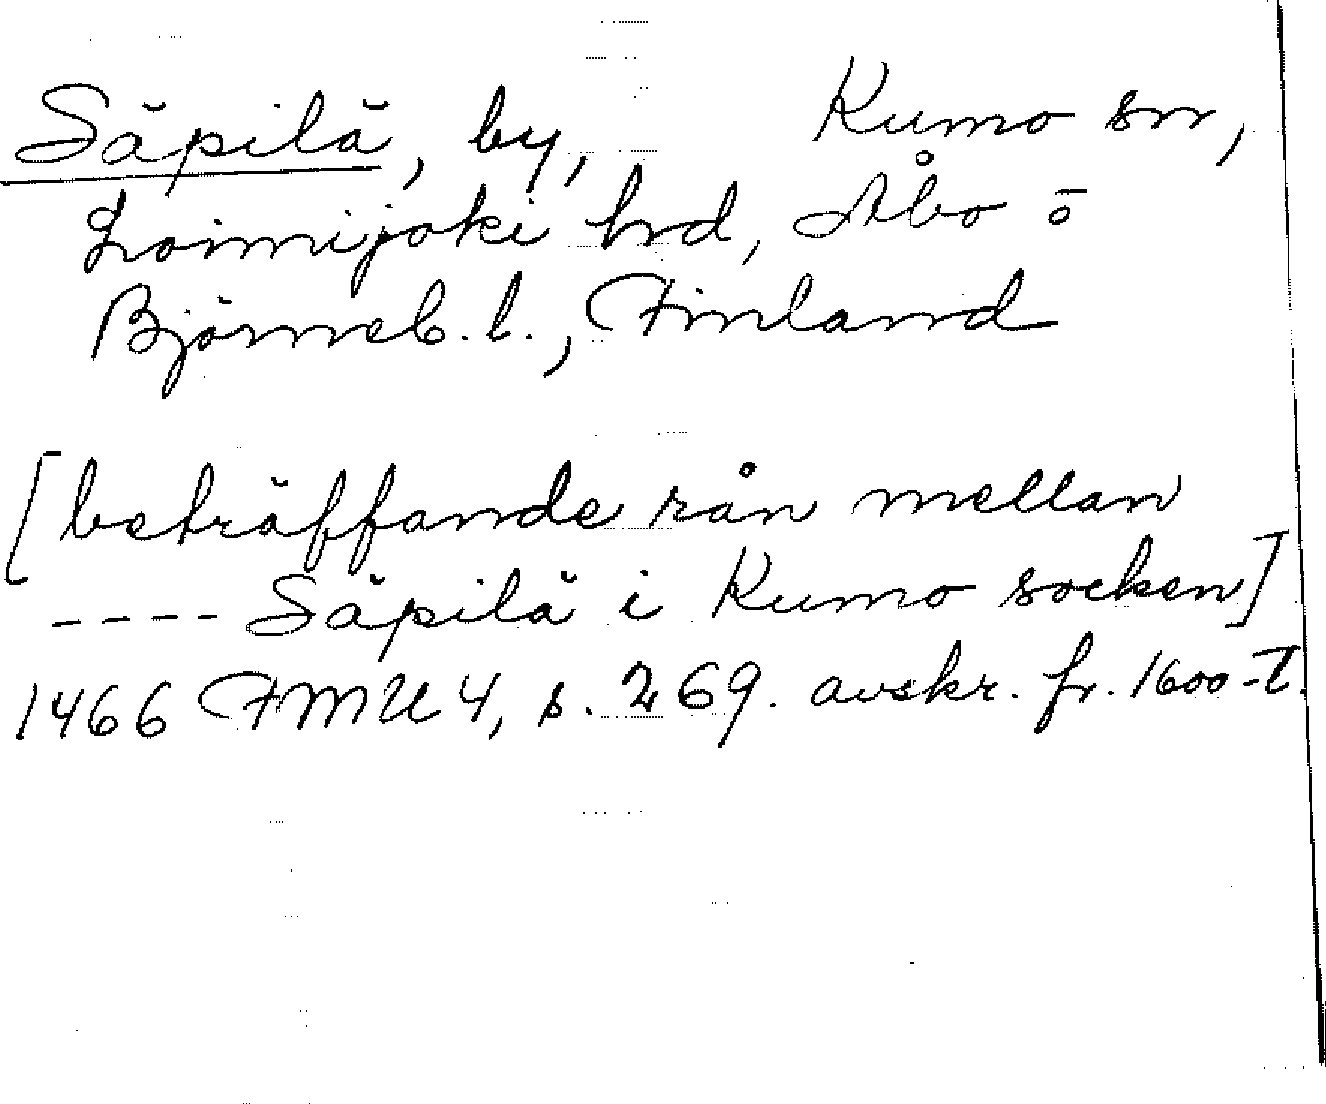 Säpilä, by, Kumo sn,
Loimijoki hrd, Åbo o
Björneb. l., Finland
[beträffande rån mellan
---- Säpilä i Kumo socken]
1466 FMU 4, s. 269. avskr. fr. 1600-t.